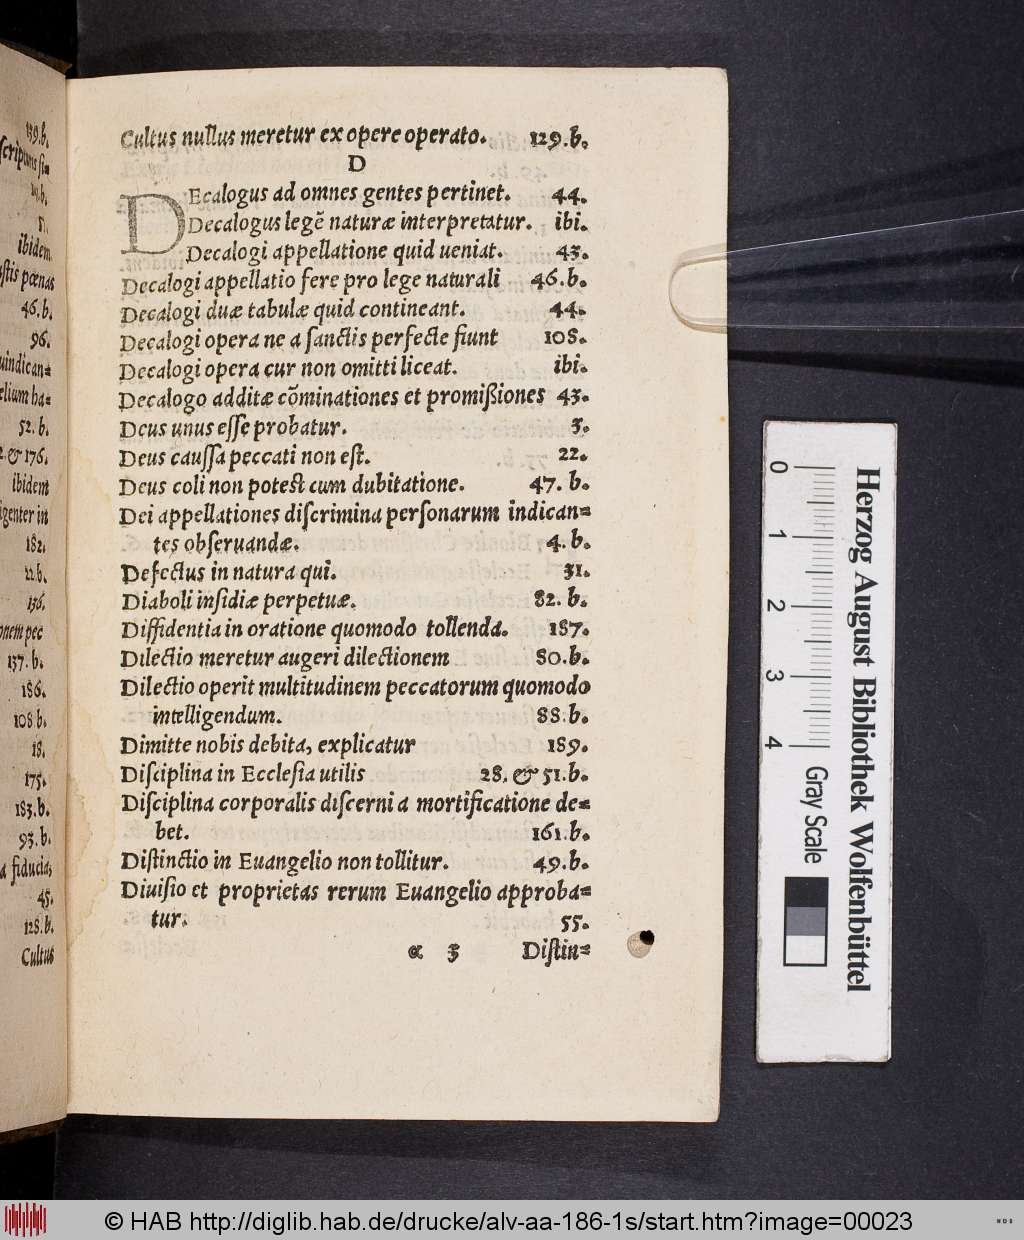 139.b.
ibidem
46.b.
96.
52.b.
& 176.
ibidem
182.
22.b.
136.
137.b.
186.
108.b.
18.
175.
183.b.
93.b.
a fiducia,
45.
128.b.
Cultus
Cultus nullus meretur ex opere operato. 129.b.
D
DEcalogus ad omnes gentes pertinet. 44.
Decalogus legẽ naturæ interpretatur. ibi.
Decalogi appellatione quid ueniat. 43.
Decalogi appellatio fere pro lege naturali 46.b.
Decalogi duæ tabulæ quid contineant. 44.
Decalogi opera ne a ſanctis perfecte fiunt 108.
Decalogi opera cur non omitti liceat. ibi.
Decalogo additæ cõminationes et promiſsiones 43.
Deus unus eſſe probatur. 3.
Deus cauſſa peccati non eſt. 22.
Deus coli non potest cum dubitatione. 47. b.
Dei appellationes diſcrimina perſonarum indican=
tes obſeruandæ. 4. b.
Defectus in natura qui. 31.
Diaboli inſidiæ perpetuæ. 82. b.
Diffidentia in oratione quomodo tollenda. 187.
Dilectio meretur augeri dilectionem 80.b.
Dilectio operit multitudinem peccatorum quomodo
intelligendum. 88.b.
Dimitte nobis debita, explicatur 189.
Diſciplina in Eccleſia utilis 28. & 51.b.
Diſciplina corporalis diſcerni a mortificatione de=
bet. 161.b.
Diſtinctio in Euangelio non tollitur. 49.b.
Diuiſio et proprietas rerum Euangelio approba=
tur. 55.
α 3 Diſtin=
0 1 2 3 4 Gray Scale
Herzog August Bibliothek Wolfenbüttel
© HAB http://diglib.hab.de/drucke/alv-aa-186-1s/start.htm?image=00023